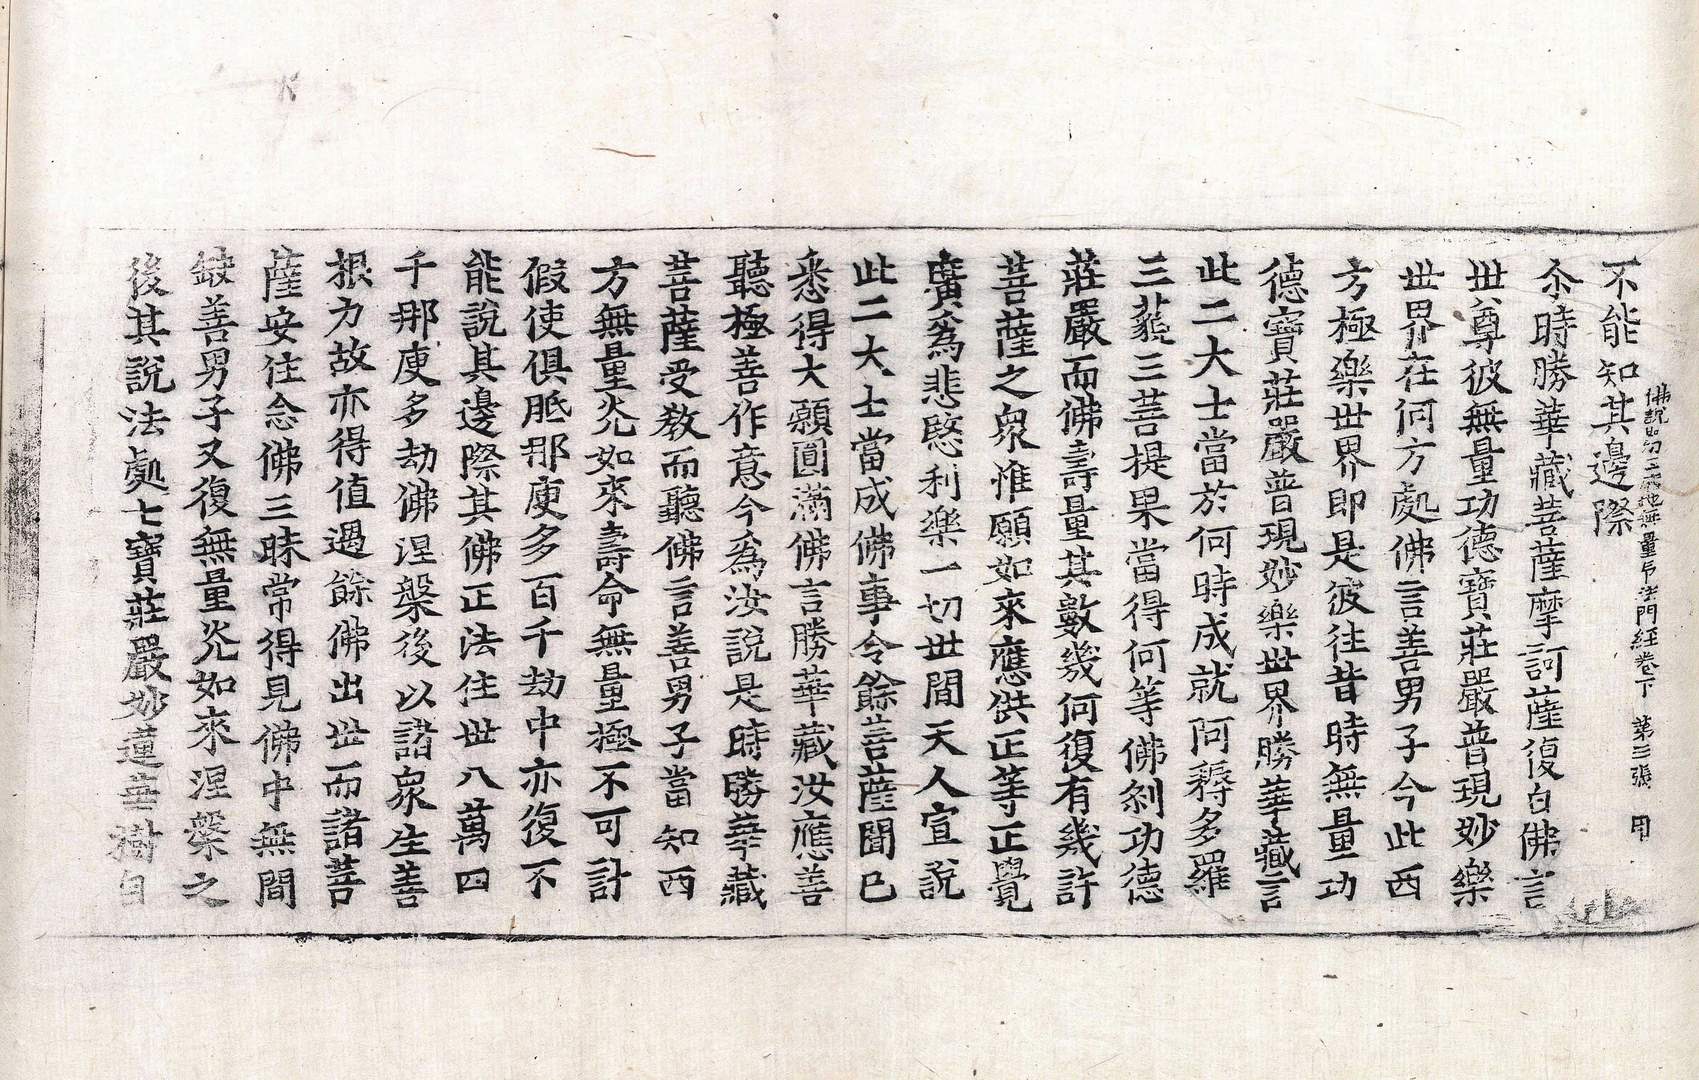 不能知其邊際
佛說如幻三摩地無量印法門經卷下 第三張 用
尒時勝華藏菩薩摩訶薩復白佛言
世尊彼無量功德寶莊嚴普現妙樂
世界在何方處佛言善男子今此西
方極樂世界即是彼往昔時無量功
德寶莊嚴普現妙樂世界勝華藏言
此二大士當於何時成就阿耨多羅
三藐三菩提果當得何等佛剎功德
莊嚴而佛壽量其數幾何復有幾許
菩薩之衆惟願如來應供正等正覺
廣爲悲愍利樂一切世間天人宣說
此二大士當成佛事令餘菩薩聞已
悉得大願圓滿佛言勝華藏汝應善
聽極善作意今爲汝說是時勝華藏
菩薩受教而聽佛言善男子當知西
方無量光如來壽命無量極不可計
假使俱胝那庾多百千劫中亦復不
能說其邊際其佛正法住世八萬四
千那庾多劫佛涅槃後以諸衆生善
根力故亦得值遇餘佛出世而諸菩
薩安住念佛三昧常得見佛中無間
缺善男子又復無量光如來涅槃之
後其說法處七寶莊嚴妙蓮華樹自